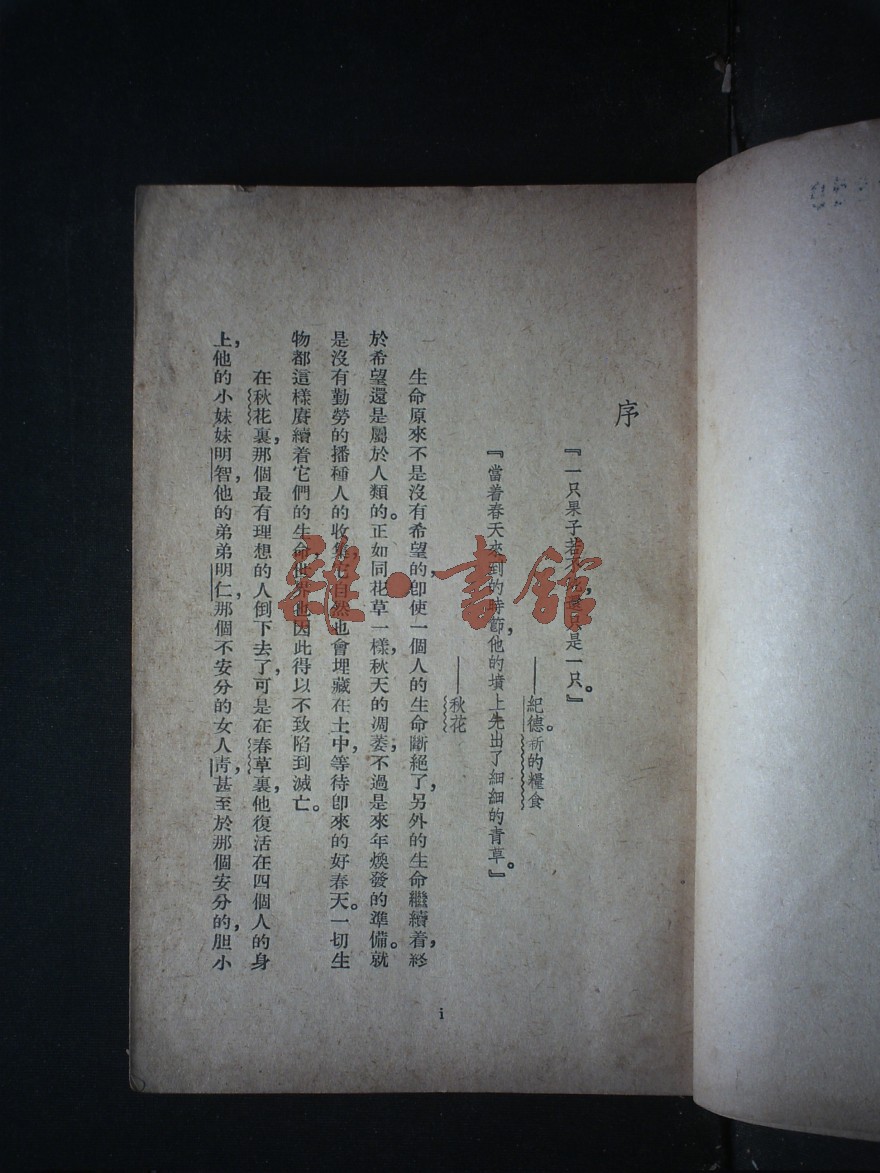 序
『一只果子若不死,還只是一只。』
——紀德。新的糧食
『當着春天來到的時節,他的墳上先出了細細的青草。』
——秋花
生命原來不是沒有希望的,卽使一個人的生命斷絕了,另外的生命繼續着,終
於希望還是屬於人類的。正如同花草一樣,秋天的凋萎,不過是來年煥發的準備。就
是沒有勤勞的播種人的收集,它自然也會埋藏在土中,等待卽來的好春天。一切生
物都這樣賡續着它們的生命,世界也因此得以不致陷到滅亡。
在秋花裏,那個最有理想的人倒下去了,可是在春草裏,他復活在四個人的身
上,他的小妹妹明智,他的弟弟明仁,那個不安分的女人靑,甚至於那個安分的,胆小
i
雜·書館